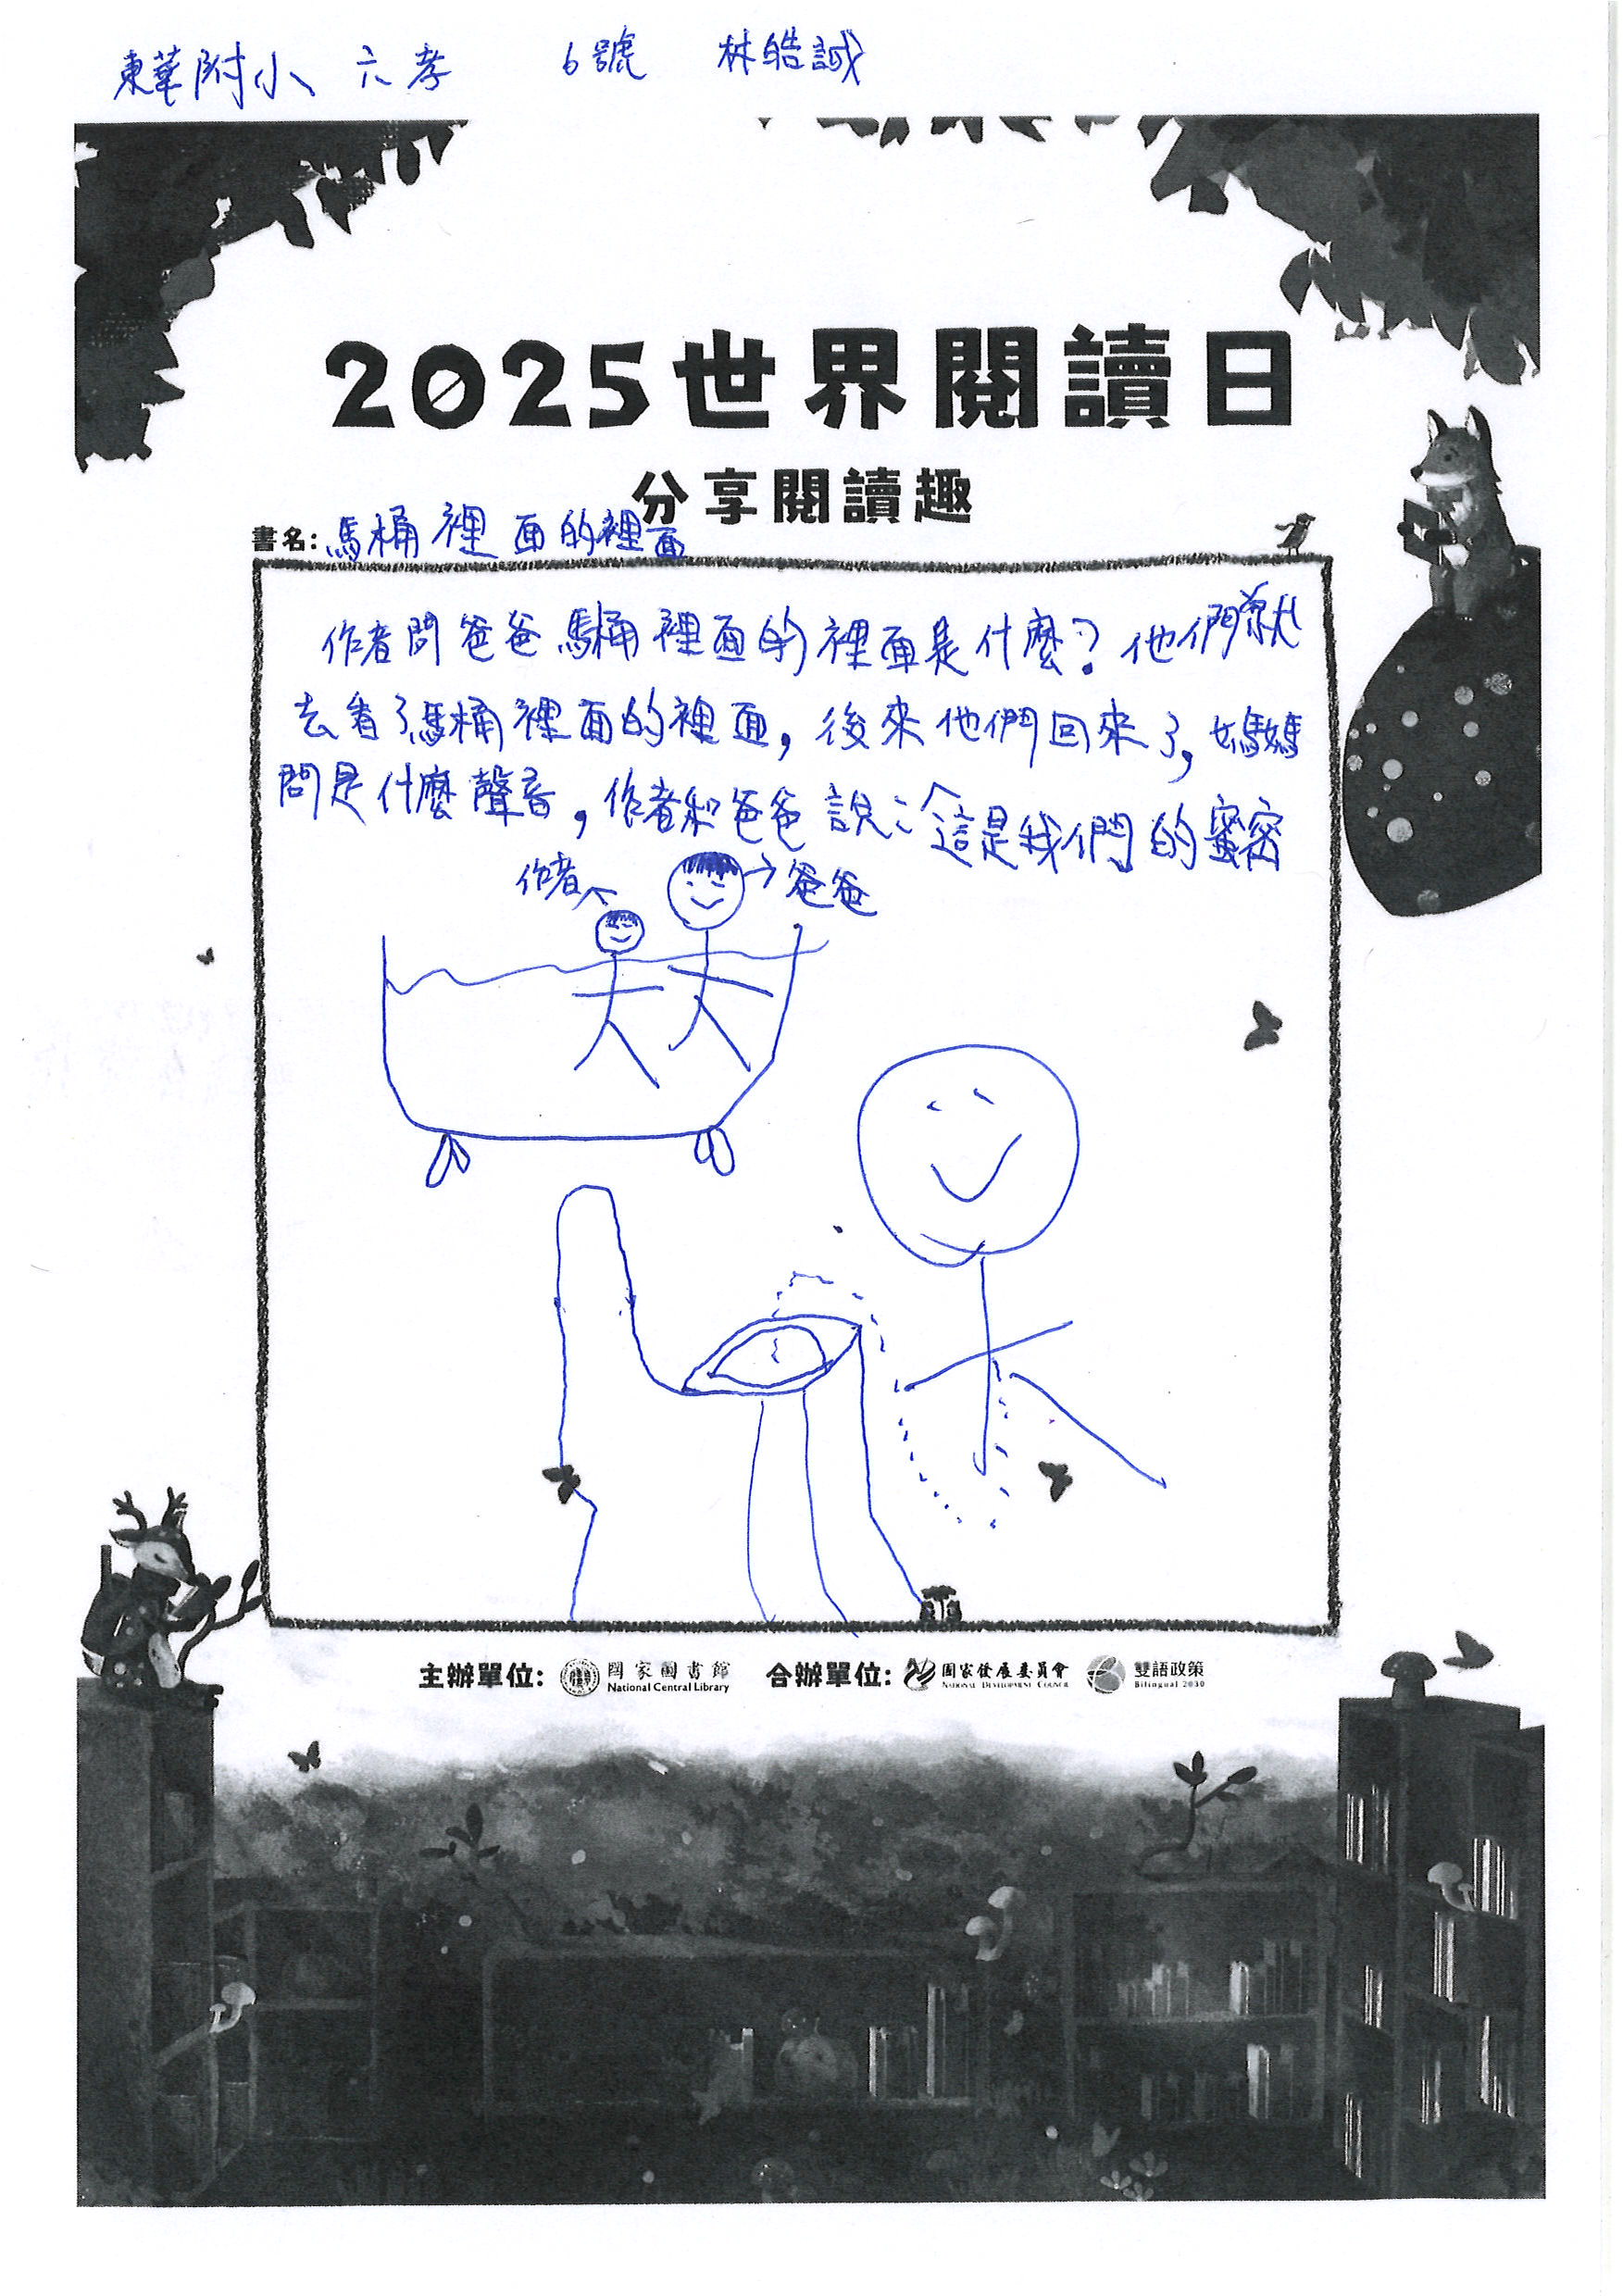 東華附小 六孝 6號 林皓誠
2025世界閱讀日
分享閱讀趣
書名:馬桶裡面的裡面
作者問爸爸馬桶裡面的裡面是什麼?他們就
去看了馬桶裡面的裡面,後來他們回來了,媽媽
問是什麼聲音,作者和爸爸說:「這是我們的蜜密
作者
爸爸
主辦單位: 國家圖書館 National Central Library 合辦單位: 國家發展委員會 National Development Council 雙語政策 Bilingual 2030